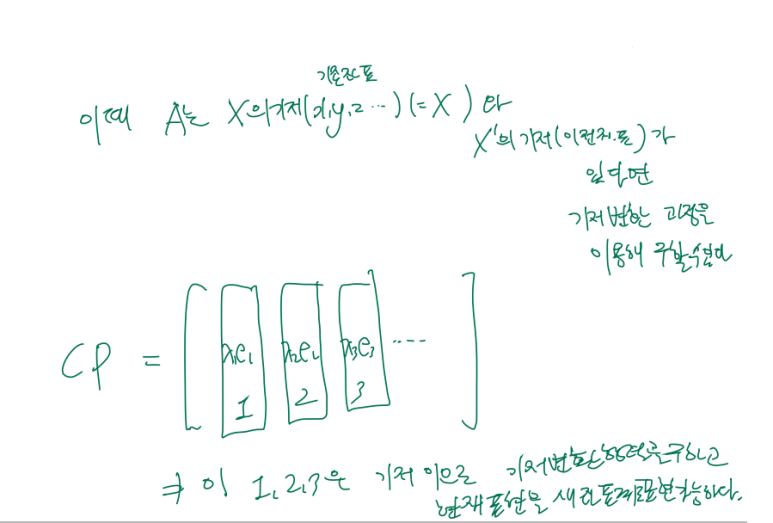 기존좌표
이때 A는 X의 기저(x,y,z ...) (=X) 와
X'의 기저(이전좌표)가
있다면
기저변환 과정을
이용해 구할 수 있다
CP = [ x₁e₁ x₂e₂ x₃e₃ .... ]
1 2 3
⇒ 이 1,2,3은 기저이므로 기저변환 행렬을 구하고
현재 표현을 새 좌표계로 표현 가능하다.